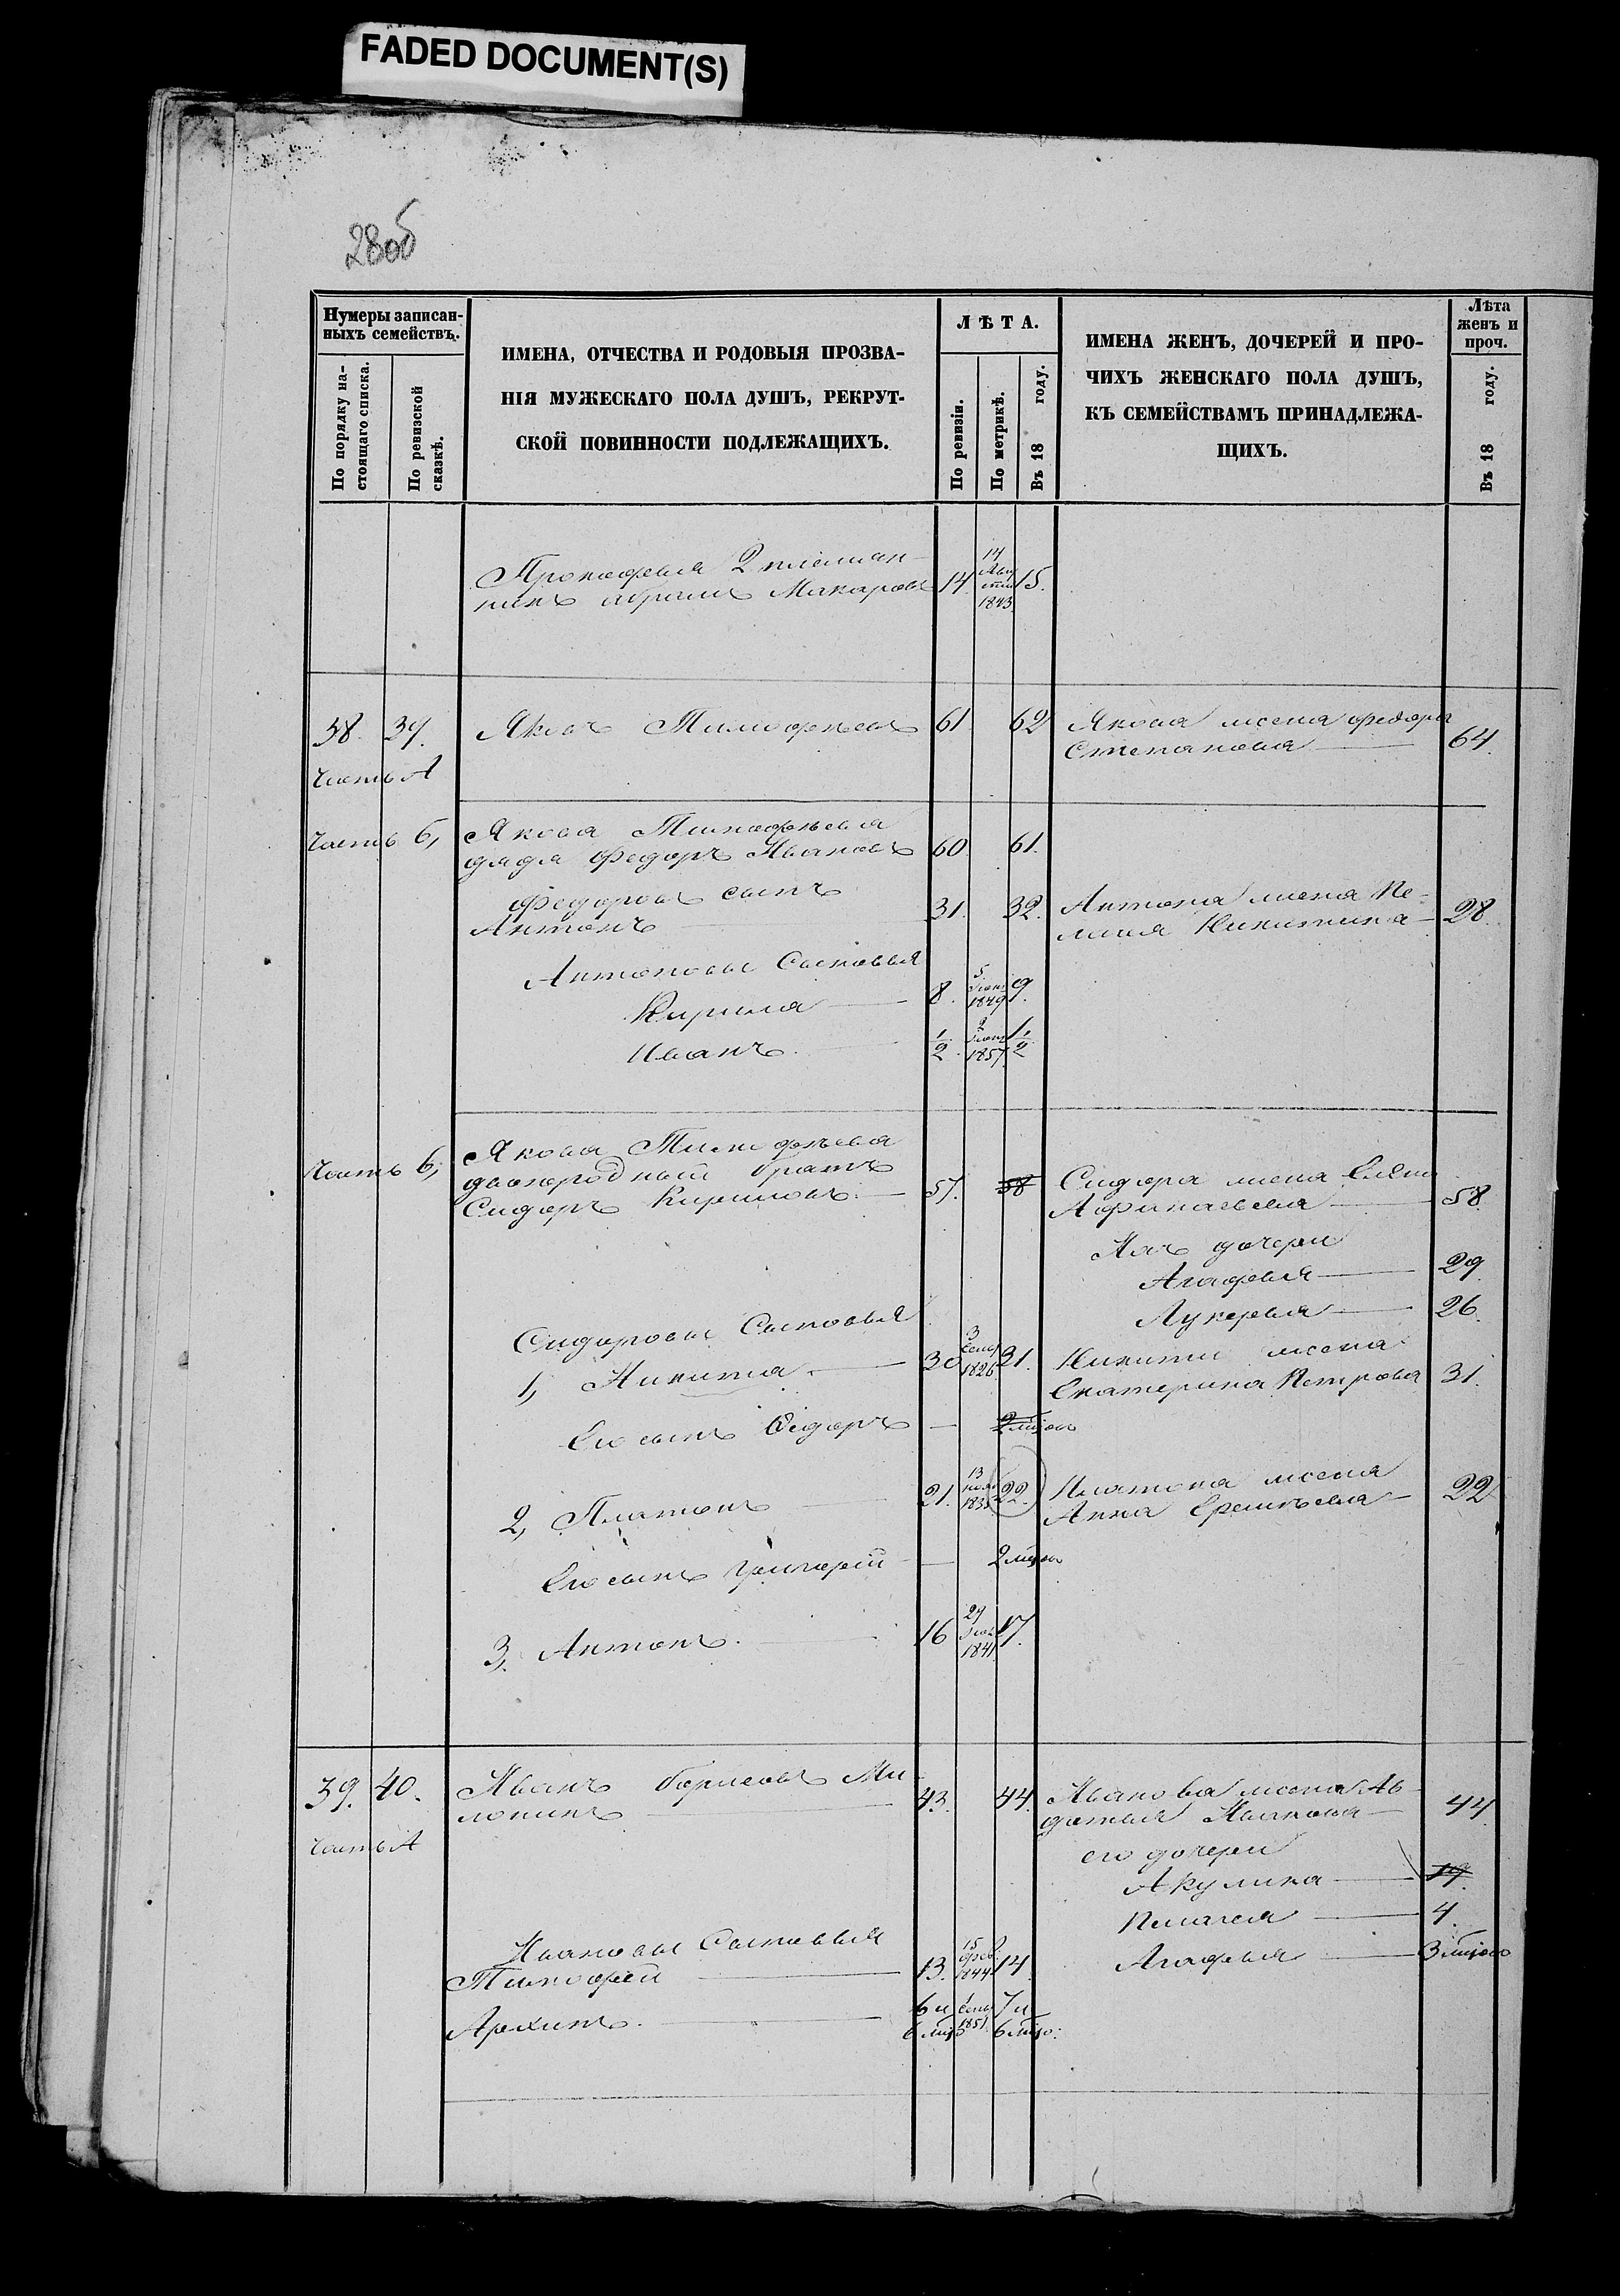 FADED DOCUMENT(S)
28об
Нумеры записан-
ныхъ семействъ.
По порядку на-
стоящаго списка.
По ревизской
сказкѣ.
ИМЕНА, ОТЧЕСТВА И РОДОВЫЯ ПРОЗВА-
НІЯ МУЖЕСКАГО ПОЛА ДУШЪ, РЕКРУТ-
СКОЙ ПОВИННОСТИ ПОДЛЕЖАЩИХЪ.
ЛѢТА.
По ревизіи.
По метрикѣ.
Въ 18 году.
ИМЕНА ЖЕНЪ, ДОЧЕРЕЙ И ПРО-
ЧИХЪ ЖЕНСКАГО ПОЛА ДУШЪ,
КЪ СЕМЕЙСТВАМЪ ПРИНАДЛЕЖА-
ЩИХЪ.
Лѣта
женъ и
проч.
Въ 18 году.
Прокофья 2 племян-
никъ Абрамъ Макаровъ 14. 14 Августа 1843 15.
38. 39. Яковъ Тимофѣевъ 61 62 Якова жена Федора
Степановна 64.
Часть А
Часть б, Якова Тимофѣева
дядя Федоръ Ивановъ 60. 61.
Федоровъ сынъ
Антонъ 31. 32. Антона жена Пе-
лагея Никитина 28
Антоновы Сыновья
Кирила 8. 5 1849 9.
Иванъ 1/2 2 1857 1/2
Часть б, Якова Тимофѣева
двоюродный братъ
Сидоръ Кириловъ 57. 58 Сидора жена Елена
Афанасьева 58
Ихъ дочери
Агафья 29
Лукерья 26.
Сидоровы Сыновья
1, Никита 30 3 Сент 1826 31. Никиты жена
Екатерина Петрова 31.
Его сынъ Ѳедоръ 2 мѣсяц
2, Платонъ 21. 13 22. Платона жена
Анна Еремѣева 22
Его сынъ Григорій 2 мѣсяц
3, Антонъ. 16 1841 17.
39. 40. Иванъ Борисовъ Ми-
лонинъ 43. 44. Иванова жена Ав-
дотья Иванова 44
Часть А
его дочери
Акулина 19
Пелагея 4.
Агафья 3 мѣсяц
Ивановы Сыновья
Тимофей 13. 15 Фев. 1844 14
Архипъ. 6 и 6 мѣс 1 Сент 1851 7 и 6 мѣс: